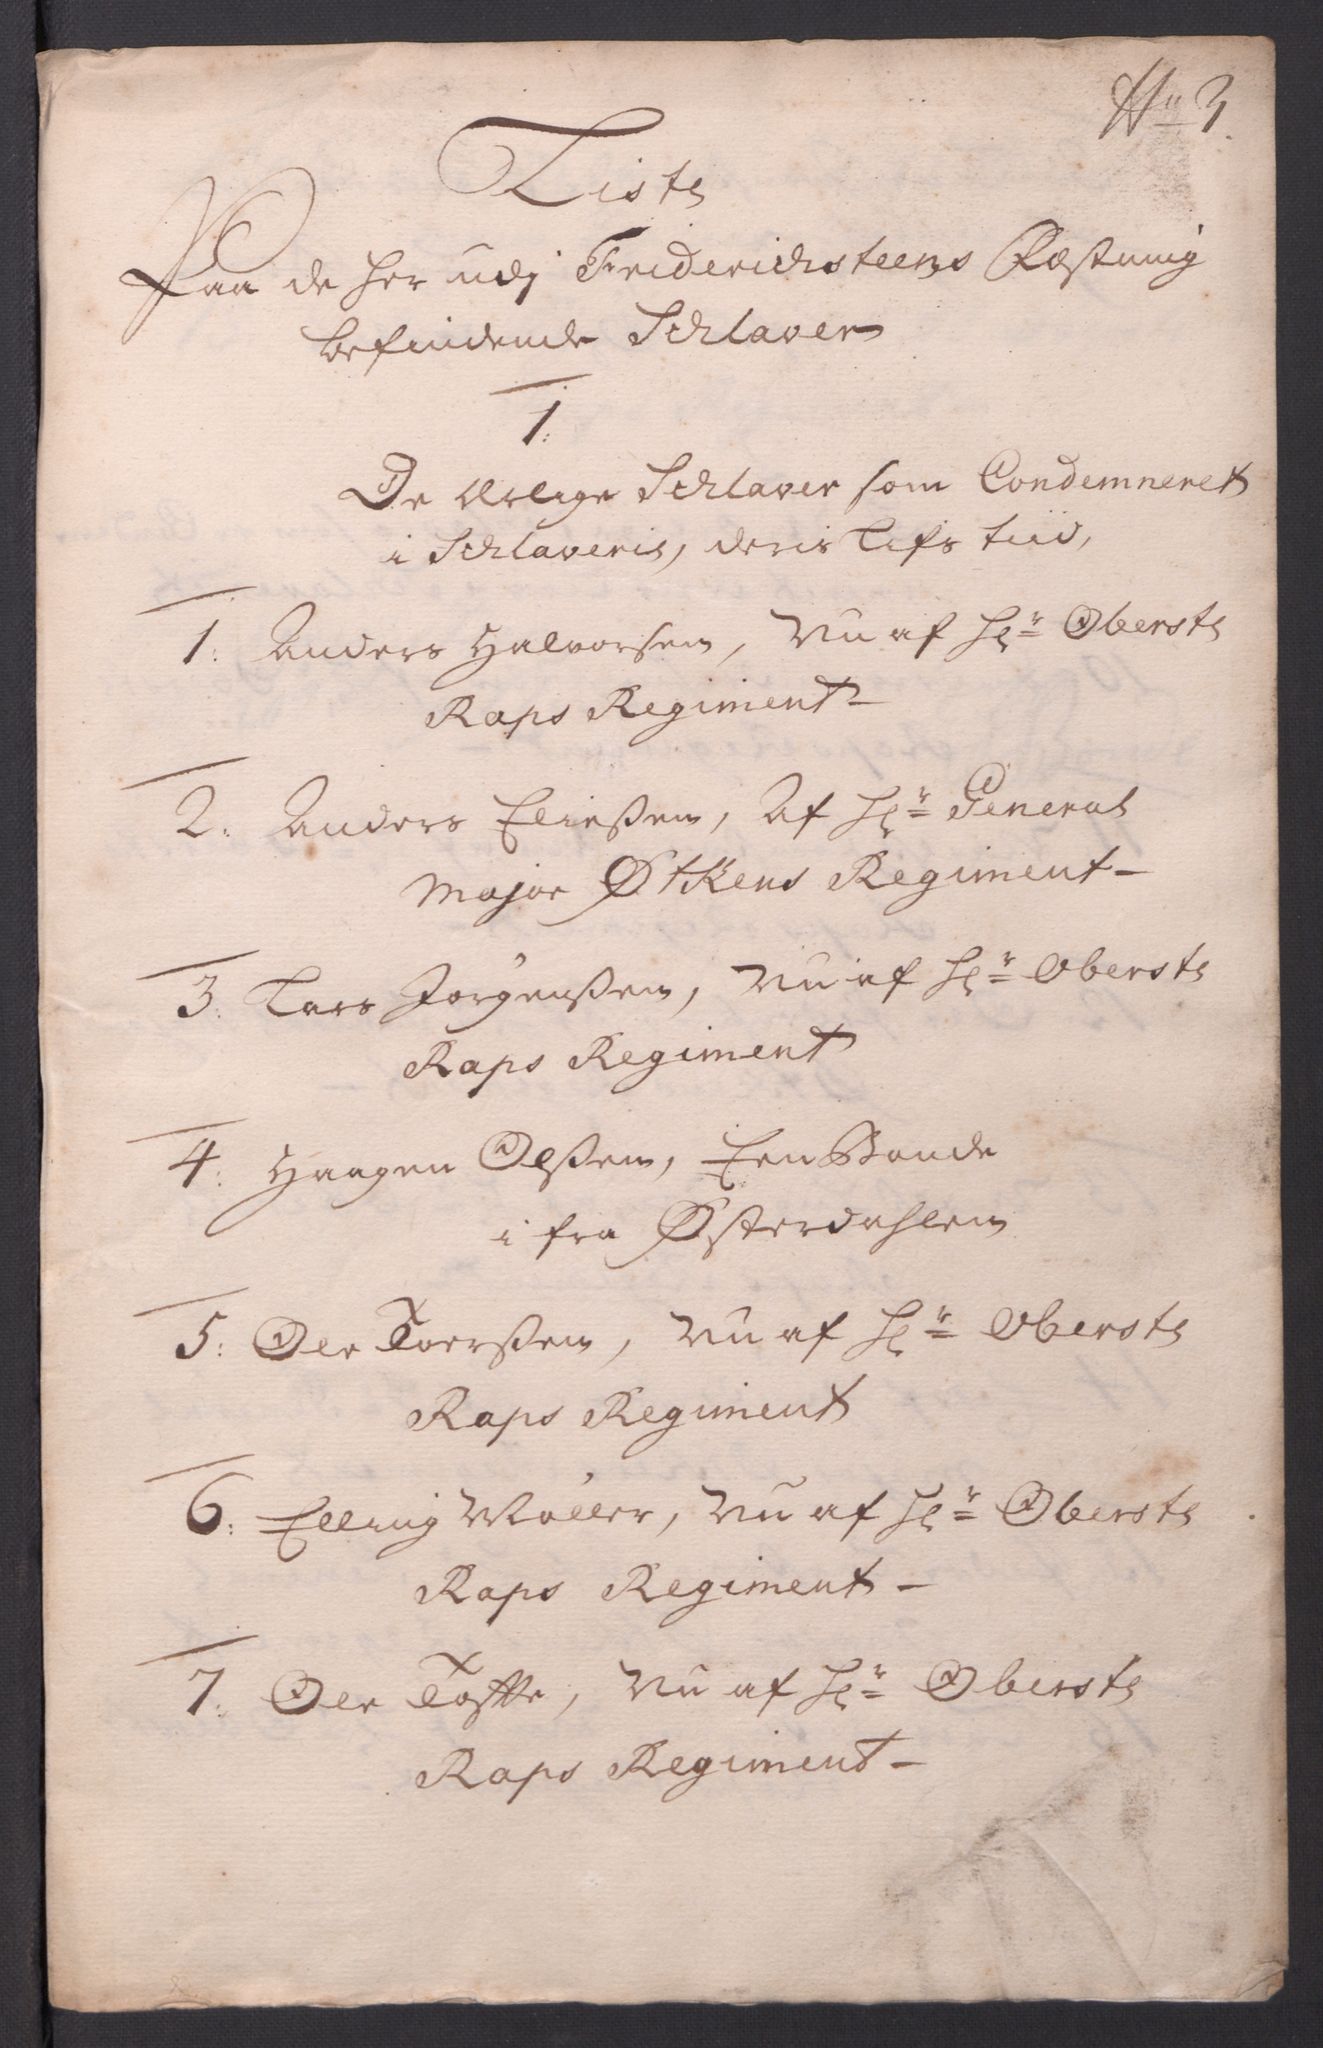 No 3.
Liste
Paa de her udj Friderichsteens Fæstning
befindende Schlaver
1.
De ærlige Schlaver som Condemneret
i Schlaverie, deris Lifs tiid,
1. Anders Halvorsen, Nu af Hr Oberste
Raps Regiment
2. Anders Eließen, Af Hr General
Major Øtkens Regiment
3. Lars Jørgenßen, Nu af Hr Oberste
Raps Regiment
4. Haagen Olßen, Een Bonde
i fra Østerdahlen
5. Ole Toerßen, Nu af Hr Oberste
Raps Regiment
6. Elling Møller, Nu af Hr Oberste
Raps Regiment
7. Ole Nu af Hr Oberste
Raps Regiment